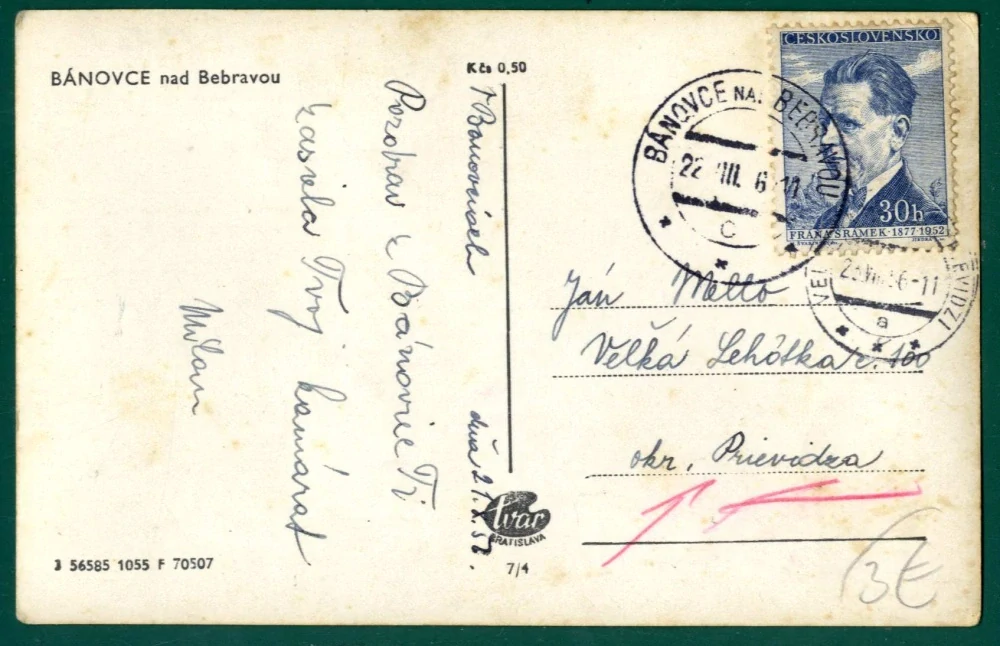 BÁNOVCE nad Bebravou
Kčs 0,50
Pozdrav z Bánoviec Ti
zasiela Tvoj kamarát
Milan
V Bánovciach
dňa 21.
ČESKOSLOVENSKO
30h
FRAŇA ŠRÁMEK · 1877-1952
BÁNOVCE NAD BEBRAVOU
22 VIII. 6 -11
C
VEĽ
EVIDZI
6-11
a
Ján Mello
Veľká Lehôtka č. 100
okr. Prievidza
Tvar
BRATISLAVA
7/4
56585 1055 F 70507
3€